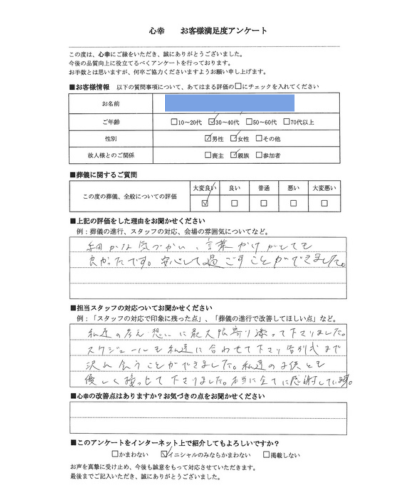 心幸　お客様満足度アンケート
この度は、心幸にご縁をいただき、誠にありがとうございました。
今後の品質向上に役立てるべくアンケートを行っております。
お手数とは思いますが、何卒ご協力くださいますようお願い申し上げます。
■お客様情報　以下の質問事項について、あてはまる評価の□にチェックを入れてください
お名前
ご年齢　□10～20代　☑30～40代　□50～60代　□70代以上
性別　☑男性　□女性　□その他
故人様とのご関係　□喪主　☑親族　□参加者
■葬儀に関するご質問
大変良い　良い　普通　悪い　大変悪い
この度の葬儀、全般についての評価　☑　□　□　□　□
■上記の評価をした理由をお聞かせください
例：葬儀の進行、スタッフの対応、会場の雰囲気についてなど。
細かな気づかい、言葉かけがとても
良かったです。安心して過ごすことができました。
■担当スタッフの対応についてお聞かせください
例：「スタッフの対応で印象に残った点」、「葬儀の進行で改善してほしい点」など。
私達の 思いに最大限寄り添って下さりました。
スケジュールも私達に合わせて下さり告別式まで
沢 会うことができました。私達の子供とも
優しく接して下さりました。本当に全てに感謝して
■心幸の改善点はありますか？お気づきの点をお聞かせください
■このアンケートをインターネット上で紹介してもよろしいですか？
□かまわない　☑イニシャルのみならかまわない　□掲載しない
お声を真摯に受け止め、今後も誠意をもって対応させていただきます。
最後までご記入いただき、誠にありがとうございました。